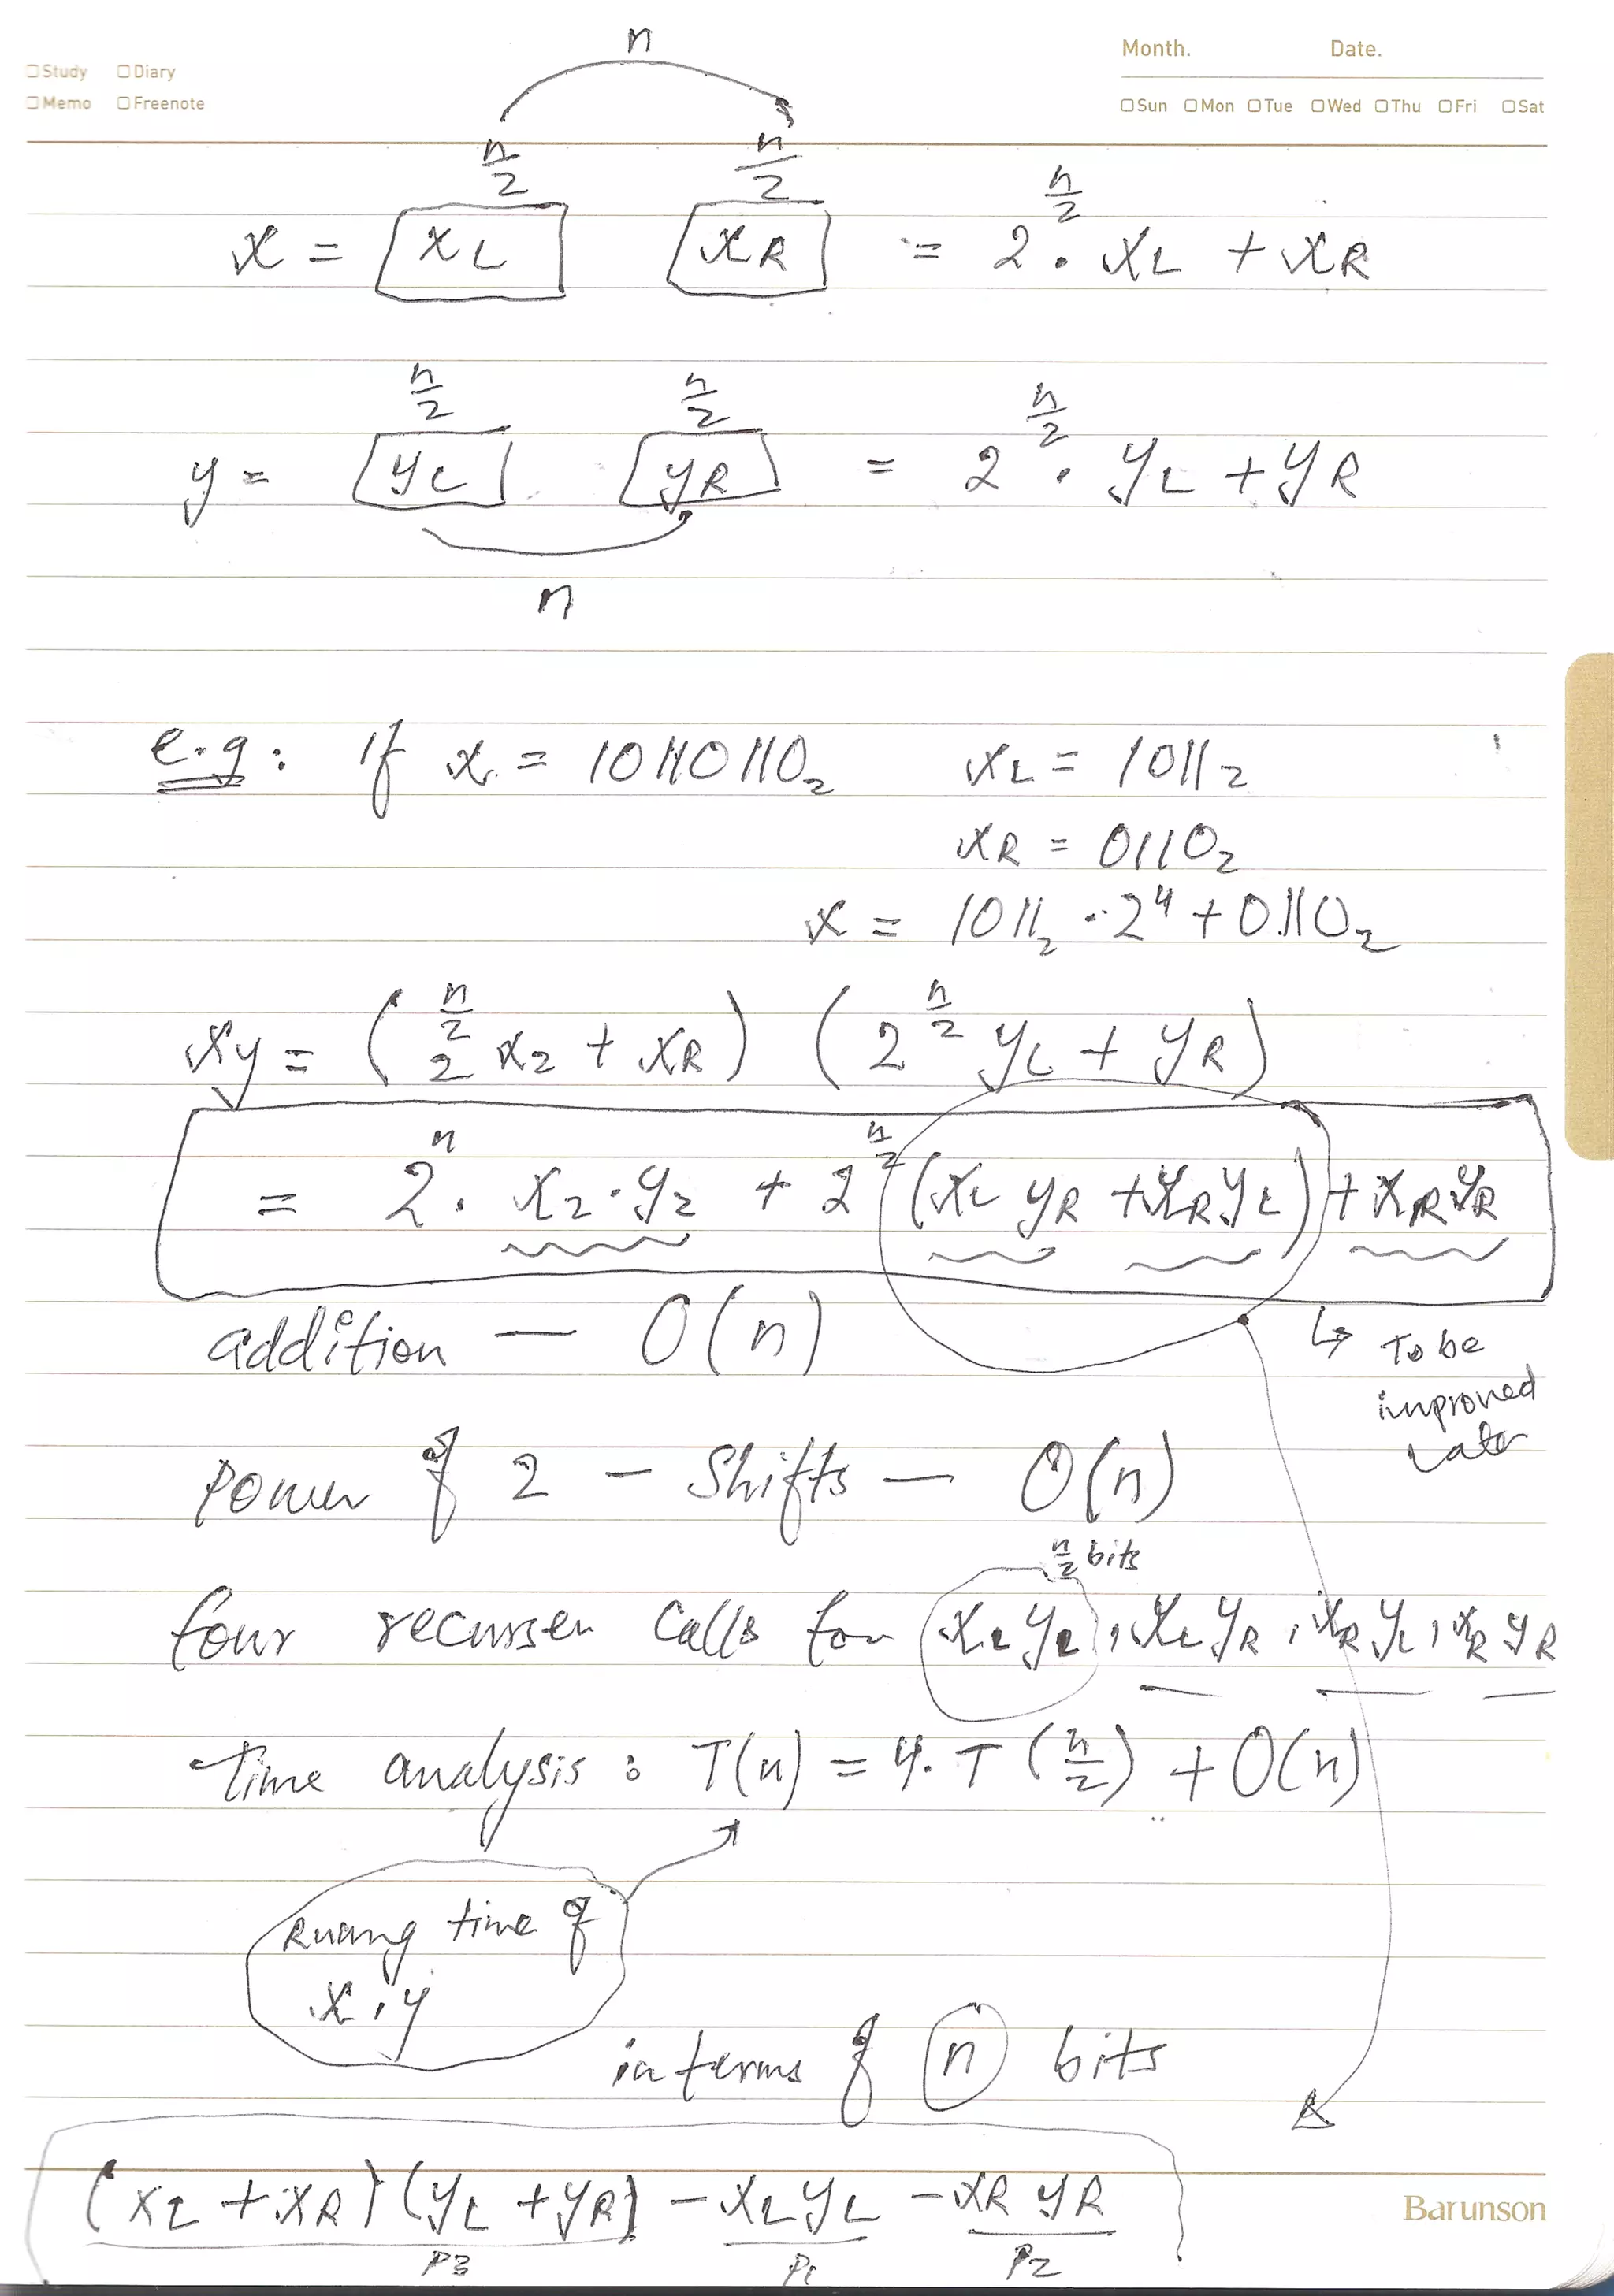 Month. Date.
□Study □Diary
□Memo □Freenote
□Sun □Mon □Tue □Wed □Thu □Fri □Sat
n
n/2 n/2
x = [xL] [xR] = 2^(n/2) · xL + xR
n/2 n/2
y = [yL] [yR] = 2^(n/2) · yL + yR
n
e.g: If x = 10110110₂ xL = 1011₂
xR = 0110₂
x = 1011₂ · 2⁴ + 0110₂
xy = (2^(n/2) xL + xR) (2^(n/2) yL + yR)
= 2^n · xL · yL + 2^(n/2) (xL yR + xR yL) + xR yR
addition — O(n)
↳ To be
improved
Later
Power of 2 — Shifts — O(n)
n/2 bits
four calls for xL yL, xL yR, xR yL, xR yR
time analysis: T(n) = 4. T(n/2) + O(n)
time of
x.y
in terms of n bits
(xL + xR) (yL + yR) − xL yL − xR yR
P3 P1 P2
Barunson